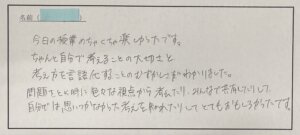 名前（
今日の授業めちゃくちゃ楽しかったです。
ちゃんと自分で考えることの大切さと
考え方を言語化することのむずかしさがわかりました。
問題をとく時に色々な視点から考えたり、みんなで共有したりして、
自分では思いつかなかった考えを知れたりしてとてもおもしろかったです。